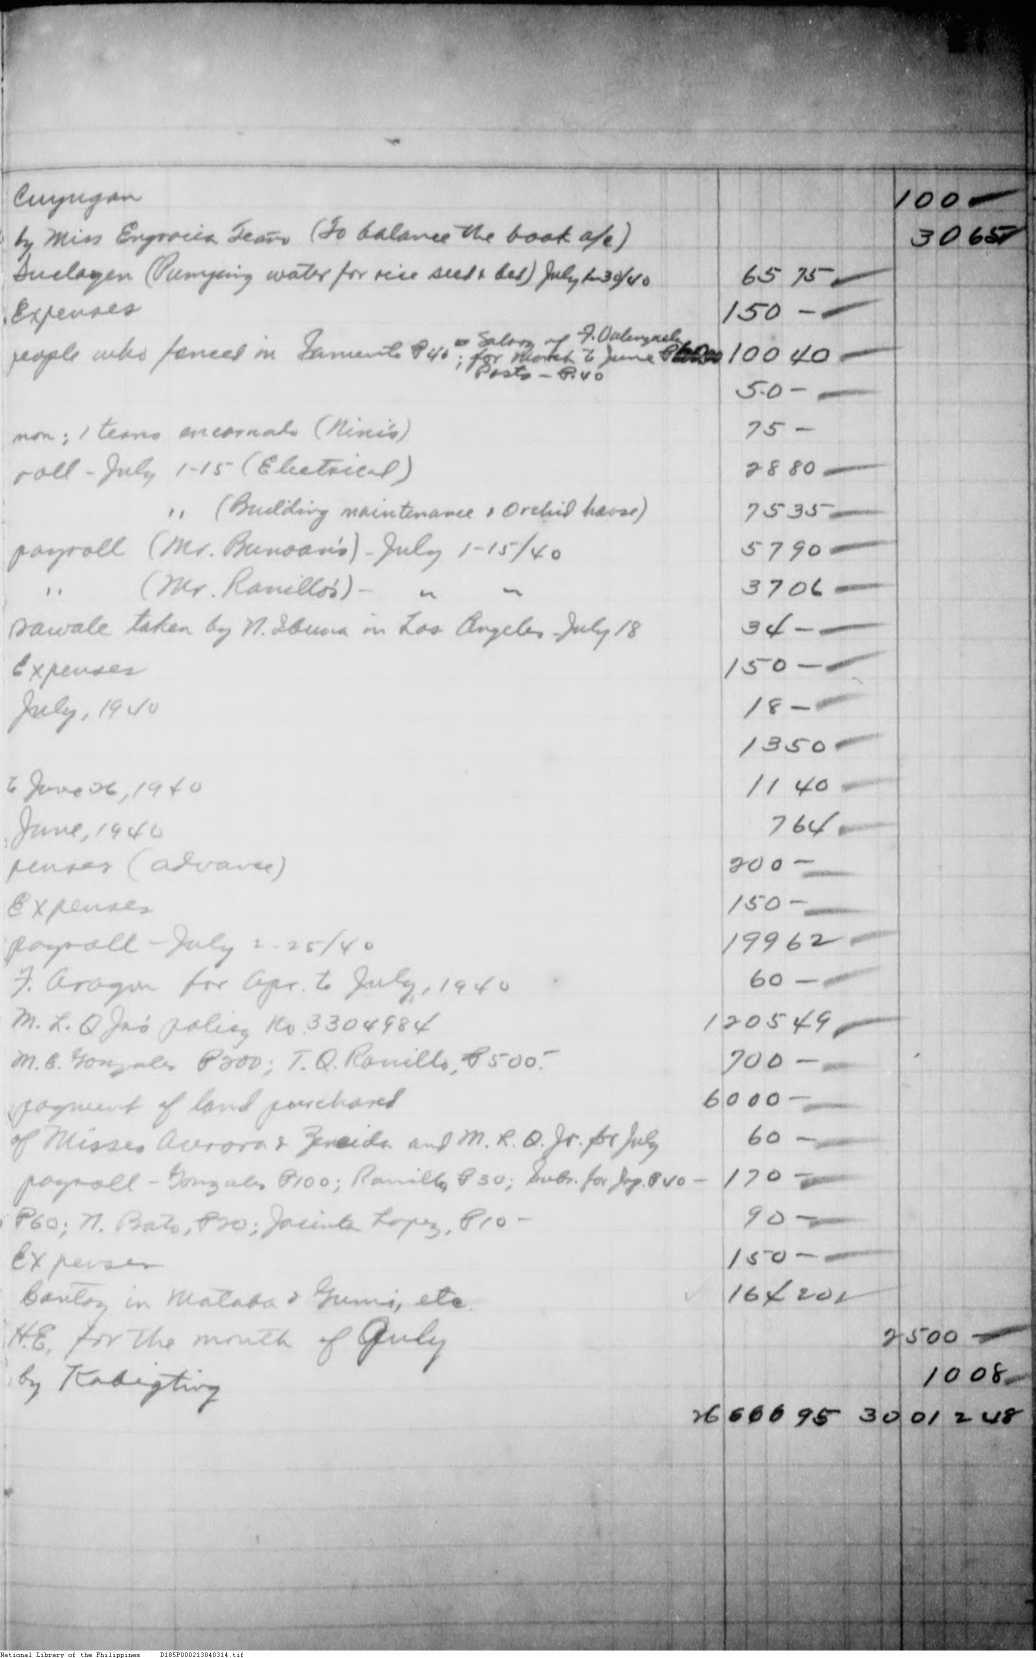 Cuyugan 100 -
by Miss Engracia (To balance the book a/c) 30 65
(Pumping water for rice seed bed) July 30/40 65 75
Expenses 150 -
people who fenced in ₱40 Salary of F. 100 40
; for March to June
Posts - ₱.40
50 -
non; 1 terno encarnado (Nini's) 75 -
roll - July 1-15 (Electrical) 28 80
" (Building maintenance & Orchid house) 75 35
payroll (Mr. Bunoan's) - July 1-15/40 57 90
" (Mr. Ranillo's) - " " 37 06
sawale taken by N. in Los Angeles - July 18 34 -
Expenses 150 -
July, 1940 18 -
13 50
to June 26, 1940 11 40
June, 1940 7 64
penses (advance) 200 -
Expenses 150 -
payroll - July 2-25/40 199 62
F. Aragon for Apr. to July, 1940 60 -
M. L. Q Jr's policy No. 3304984 1205 49
M. B. Gonzales ₱200; T. Q. Ranillo, ₱500.- 700 -
payment of land purchased 6000 -
of Misses Aurora & Zeneida and M. L. Q. Jr. for July 60 -
payroll - Gonzales ₱100; Ranillo, ₱30; Subs. for Jap. ₱40 - 170 -
₱60; N. Bato, ₱20; Jacinta Lopez, ₱10 - 90 -
Expenses 150 -
Bantay in Mataba & Gumi, etc. 164 20
H.E. for the month of July 2500 -
by Kabigting 10 08
26 666 95 30 01 2 48
National Library of the Philippines D185P000213840314.tif